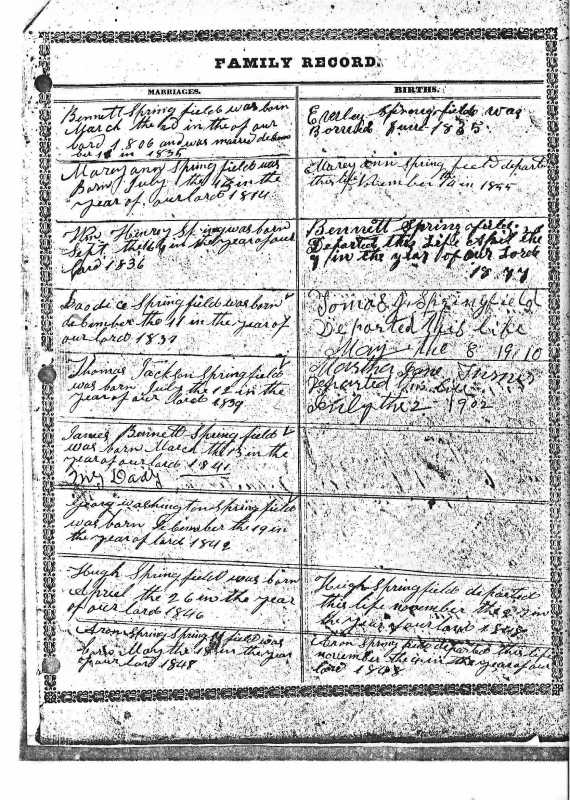 FAMILY RECORD.
MARRIAGES.
Bennett Springfield was born
March the in the of our
lord 1806 and was
in 1835
Mary ann Springfield was
Born July the in the
year of our lord 1814
Wm Henry was born
Sept the in the year of our
lord 1836
Laodice Springfield was born
december the 11 in the year of
our lord
Thomas Jackson Springfield
was born July the in the
year of our lord 1839
James Bennett Springfield
was born March the 13 in the
year of our lord 1841
My Dady
Georg washington Springfield
was born the 19 in
the year of lord 1842
Hugh Springfield was born
Apriel the 26 in the year
of our lord 1846
Aron Spring Springfield was
born May the 18 in the year
of our lord 1848
BIRTHS.
Springfield was
June 1835
Marey ann Springfield depart
this life November 14 in 1855
Bennett Springfield
Departed this Life April the
7 in the year of our Lord
1877
Tomas J Springfield
Departed This Life
May the 8 1910
Martha Jane
Departed this Life
July the 2 1902
Hugh Springfield departed
this life november the in
the year of our lord 1848
Aron Springfield departed this life
november the in the year of our
lord 1848